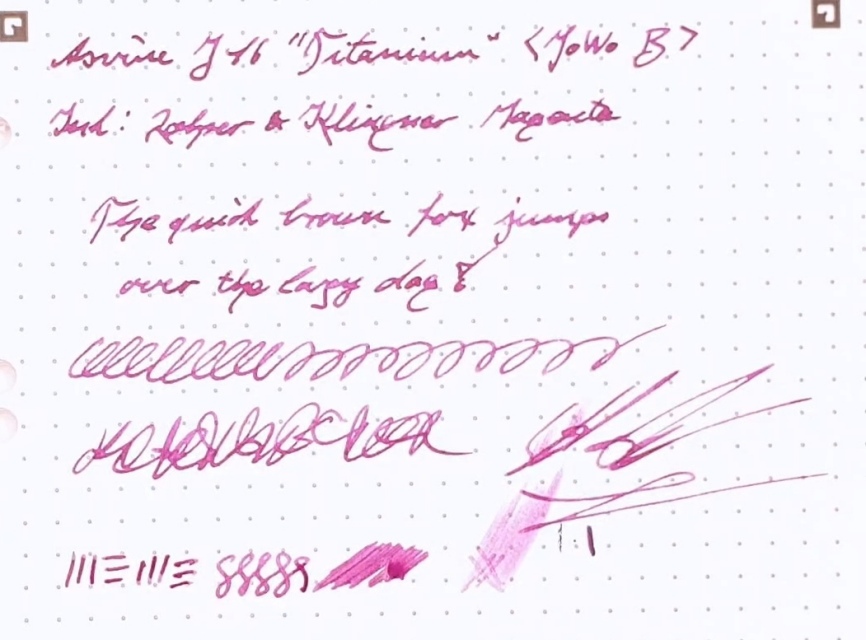 Asvine J16 "Titanium" <JoWo B>
Ink: Rohrer & Klingner Magenta
The quick brown fox jumps
over the lazy dog!